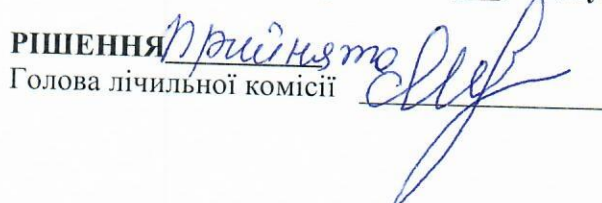 РІШЕННЯ прийнято
Голова лічильної комісії